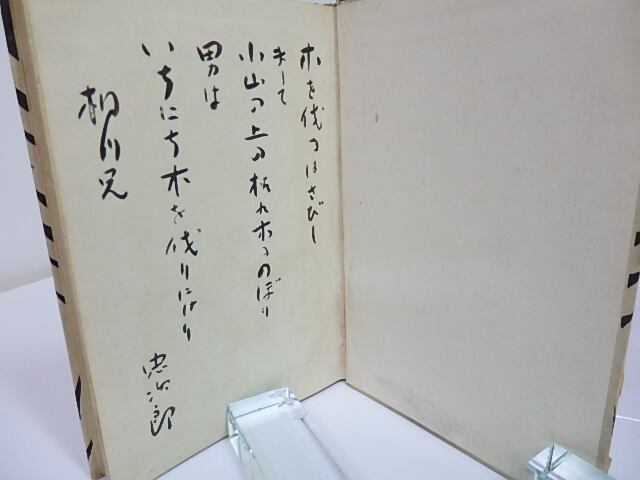 木を伐るはさびし
小山の上の枯れ木にのぼり
男は
いちにち木を伐りにけり
忠次郎
相川兄